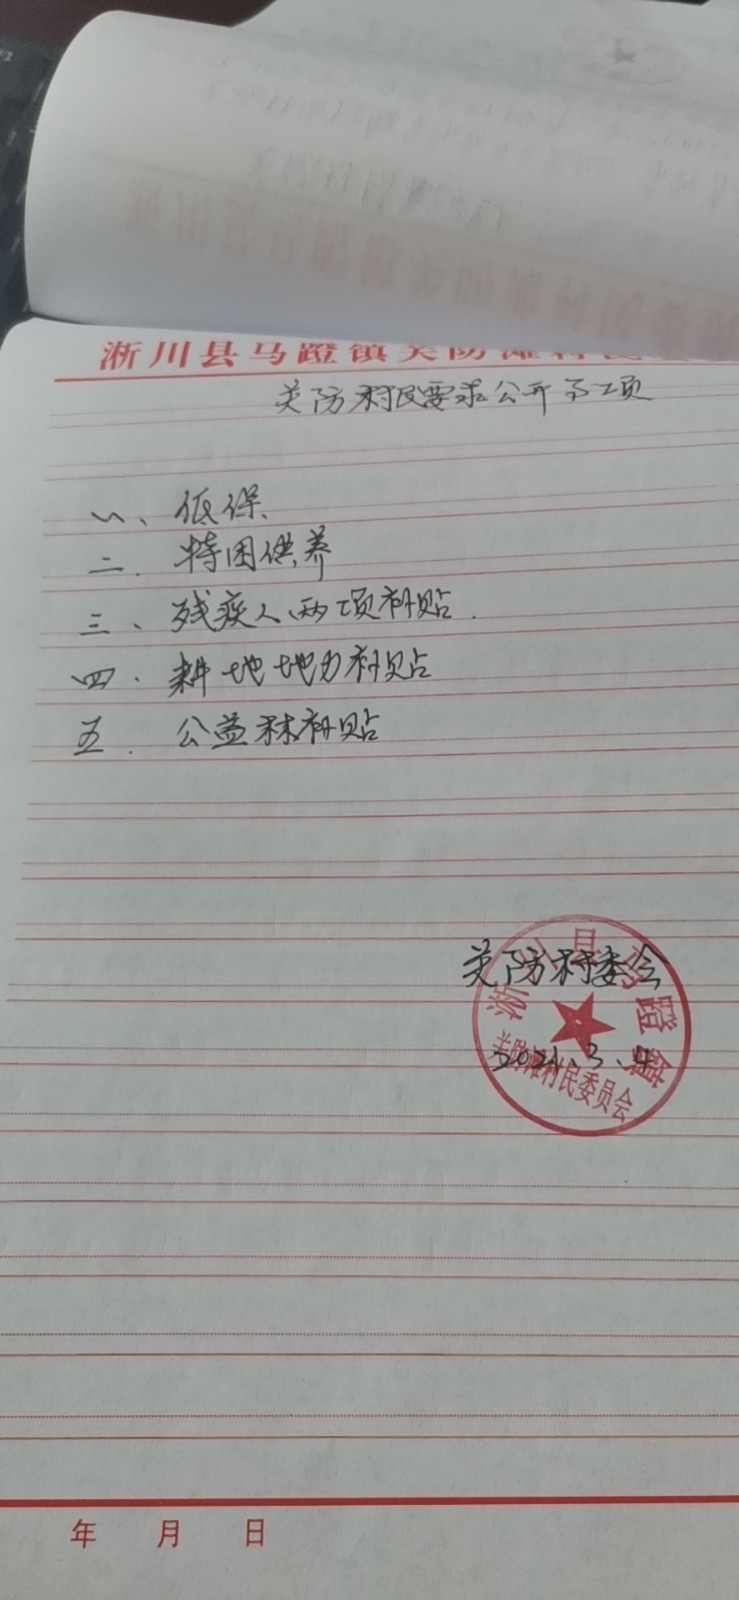 淅川县马蹬镇关防滩村民
关防村民要求公开事项
一、低保、
二、特困供养
三、残疾人两项补贴.
四、耕地地力补贴
五、公益林补贴
关防村委会
2021.3.4
淅川县马蹬镇
关防滩村民委员会
年 月 日